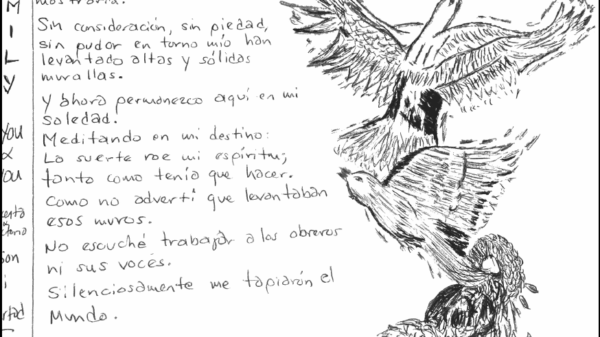 M
I
L
Y
you
&
you
son
i
Sin consideración, sin piedad,
sin pudor en torno mío han
levantado altas y sólidas
murallas.
Y ahora permanezco aquí en mi
soledad.
Meditando en mi destino:
La suerte roe mi espíritu;
tanto como tenía que hacer.
Como no advertí que levantaban
esos muros.
No escuché trabajar a los obreros
ni sus voces.
Silenciosamente me tapiarón el
Mundo.